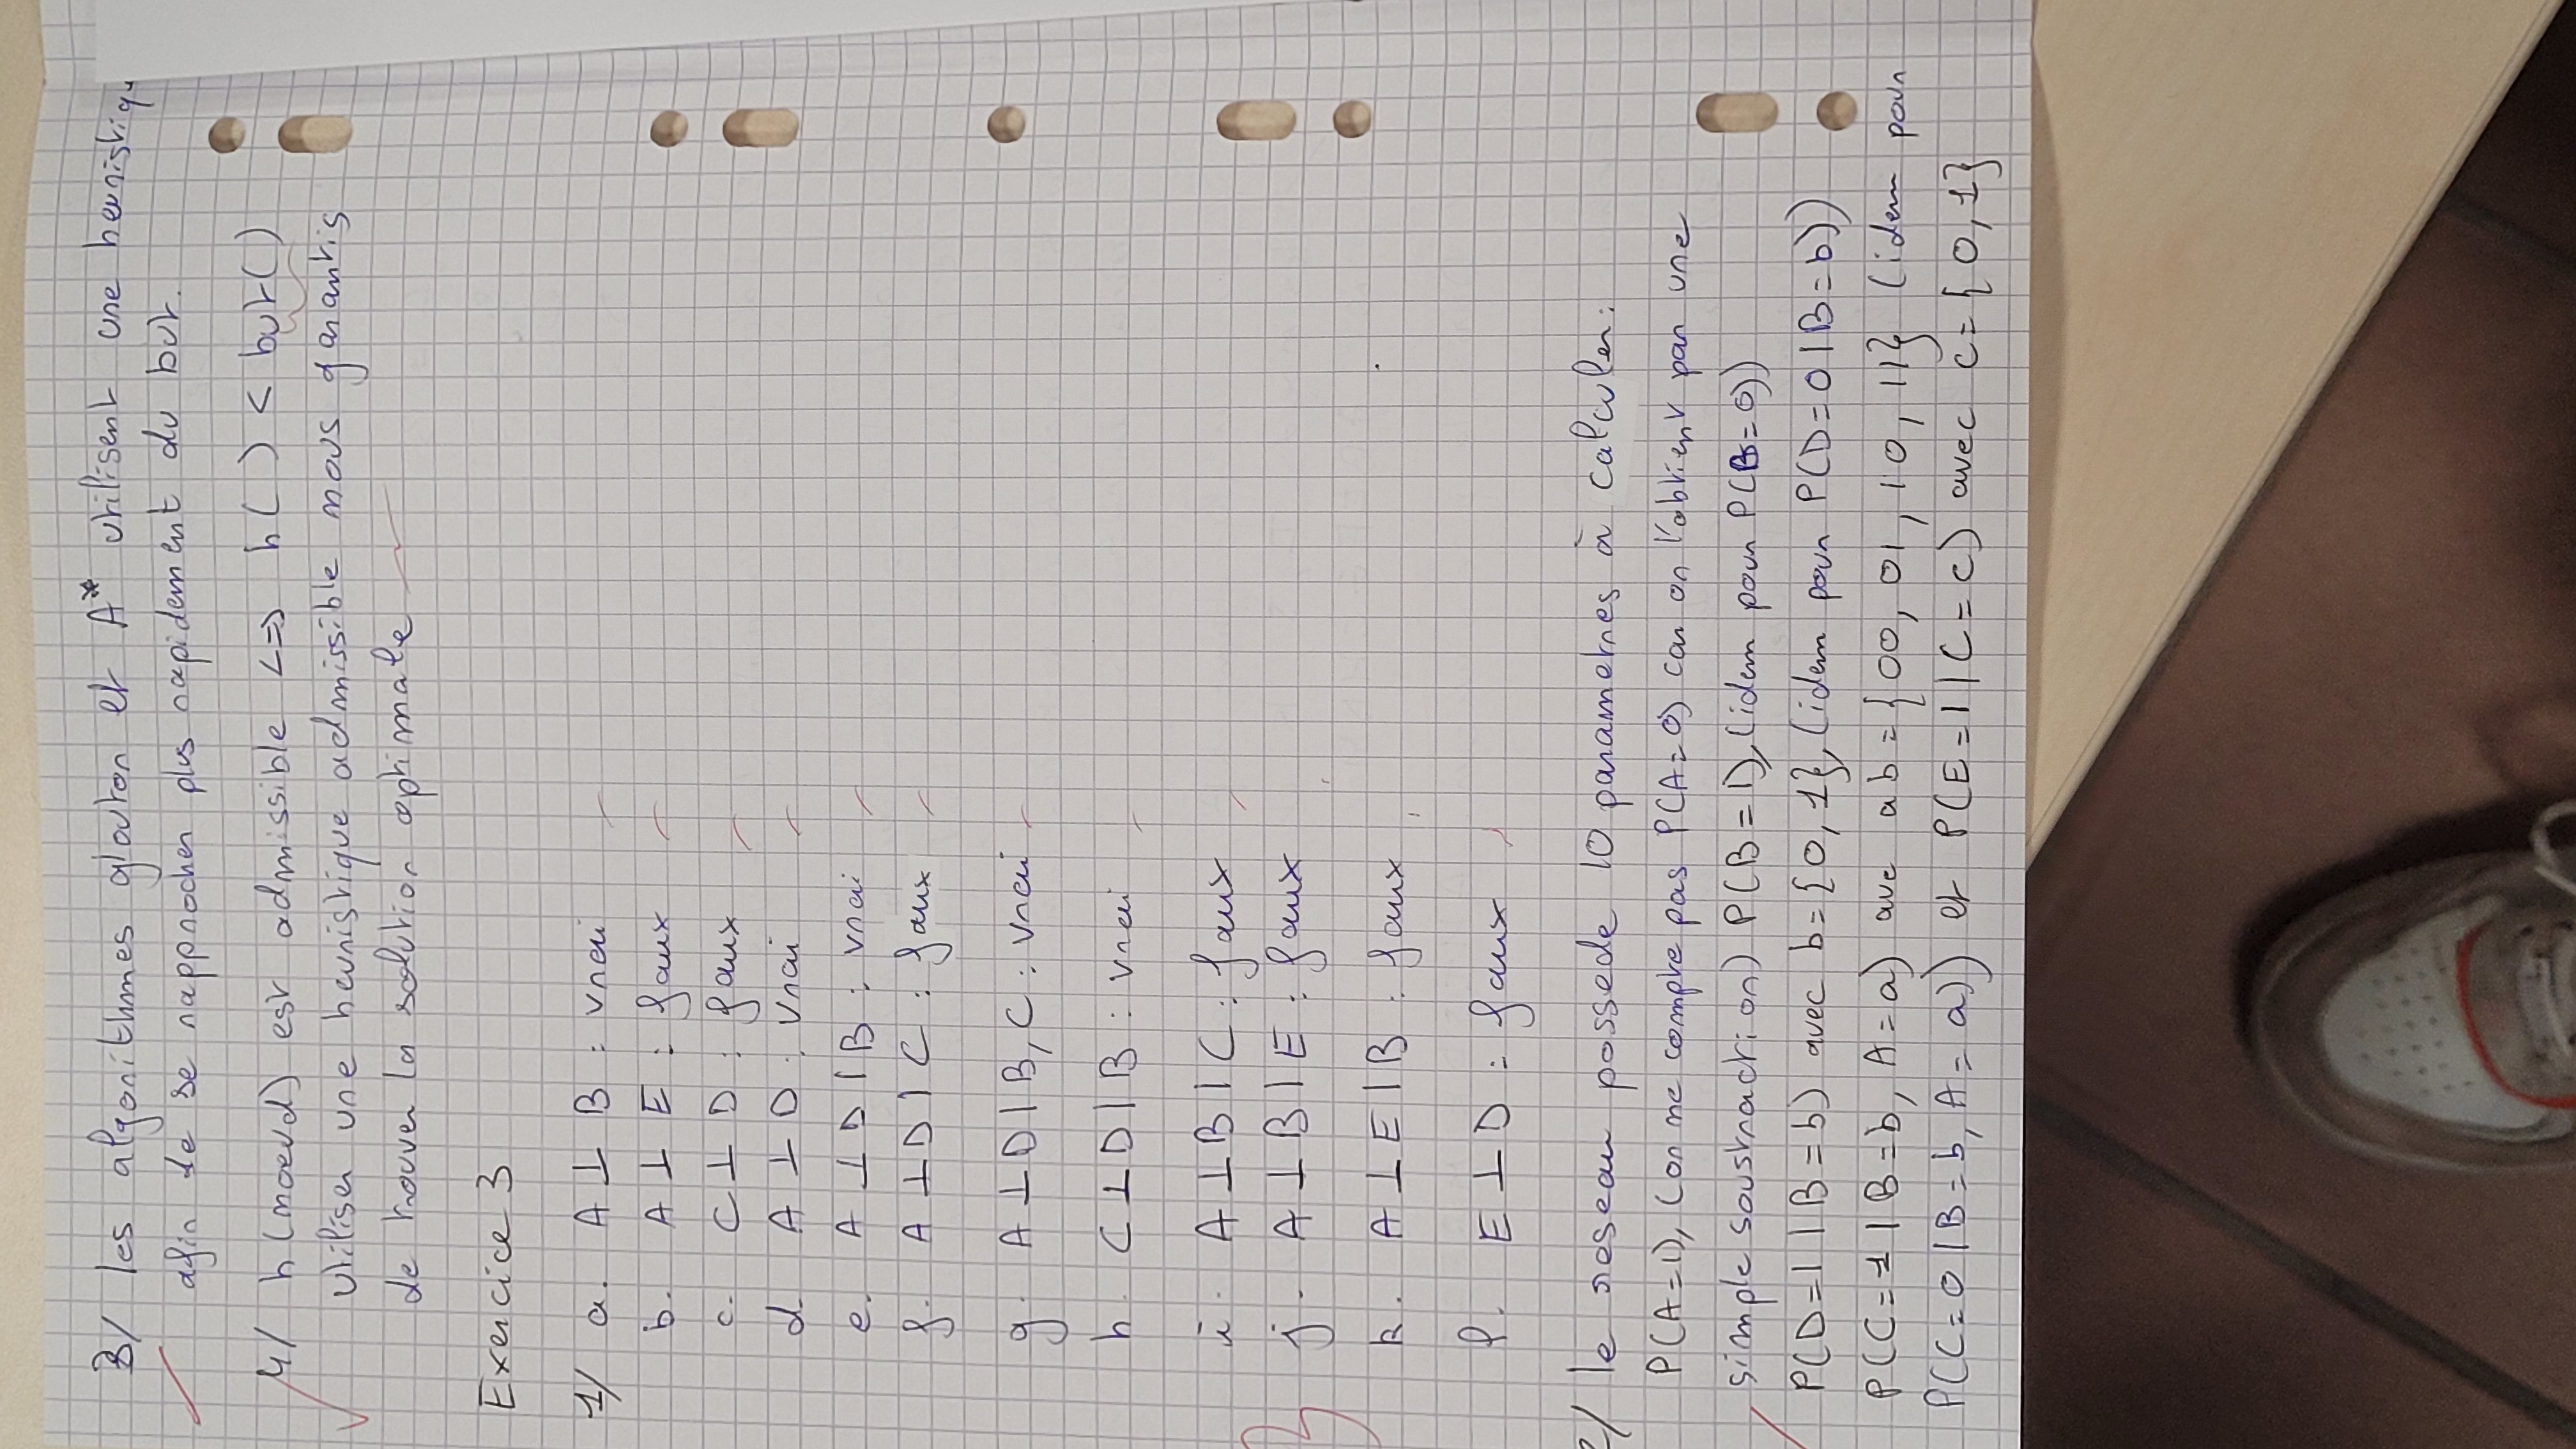 3/ les algorithmes glouton et A* utilisent une heuristiqu
afin de se rapprocher plus rapidement du but.
4/ h(noeud) est admissible <=> h( ) < but()
utiliser une heuristique admissible nous garantis
de trouver la solution optimale
Exercice 3
1/ a. A ⊥ B : vrai
b. A ⊥ E : faux
c. C ⊥ D : faux
d A ⊥ D : vrai
e. A ⊥ D | B : vrai
f. A ⊥ D | C : faux
g. A ⊥ D | B, C : vrai
h. C ⊥ D | B : vrai
i. A ⊥ B | C : faux
j. A ⊥ B | E : faux
k. A ⊥ E | B : faux
l. E ⊥ D : faux
2/ le reseau possede 10 parametres à calculer:
P(A=1), (on ne compte pas P(A=0) car on l'obtient par une
simple soustraction) P(B=1), (idem pour P(B=0))
P(D=1 | B=b) avec b={0,1}, (idem pour P(D=0 | B=b))
P(C=1 | B=b, A=a) avec ab={00, 01, 10, 11} (idem pour
P(C=0 | B=b, A=a)) et P(E=1 | C=c) avec c={0,1}